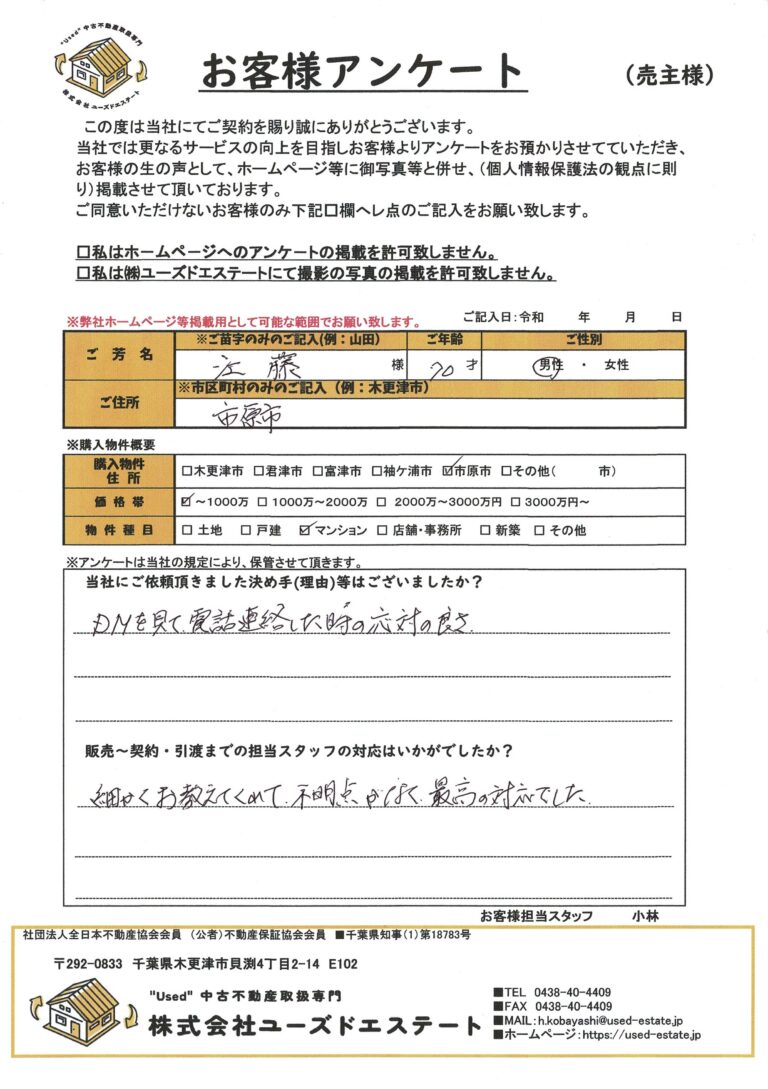 "Used" 中古不動産取扱専門
株式会社ユーズドエステート
お客様アンケート
（売主様）
この度は当社にてご契約を賜り誠にありがとうございます。
当社では更なるサービスの向上を目指しお客様よりアンケートをお預かりさせてていただき、
お客様の生の声として、ホームページ等に御写真等と併せ、（個人情報保護法の観点に則
り）掲載させて頂いております。
ご同意いただけないお客様のみ下記□欄へレ点のご記入をお願い致します。
□私はホームページへのアンケートの掲載を許可致しません。
□私は㈱ユーズドエステートにて撮影の写真の掲載を許可致しません。
※弊社ホームページ等掲載用として可能な範囲でお願い致します。 ご記入日：令和 年 月 日
ご芳名 ※ご苗字のみのご記入(例：山田) ご年齢 ご性別
江藤 様 70 才 男性 ・ 女性
ご住所 ※市区町村のみのご記入（例：木更津市）
市原市
※購入物件概要
購入物件
住所
□木更津市 □君津市 □富津市 □袖ケ浦市 ☑市原市 □その他( 市)
価格帯 ☑～1000万 □ 1000万～2000万 □ 2000万～3000万円 □ 3000万円～
物件種目 □ 土地 □ 戸建 ☑ マンション □ 店舗・事務所 □ 新築 □ その他
※アンケートは当社の規定により、保管させて頂きます。
当社にご依頼頂きました決め手(理由)等はございましたか？
DMを見て、電話連絡した時の応対の良さ
販売～契約・引渡までの担当スタッフの対応はいかがでしたか？
細かくお教えてくれて、不明点がなく、最高の対応でした。
お客様担当スタッフ 小林
社団法人全日本不動産協会会員 （公者）不動産保証協会会員 ■千葉県知事（1）第18783号
〒292-0833 千葉県木更津市貝渕4丁目2-14 E102
"Used" 中古不動産取扱専門
株式会社ユーズドエステート
■TEL 0438-40-4409
■FAX 0438-40-4409
■MAIL：h.kobayashi@used-estate.jp
■ホームページ：https://used-estate.jp